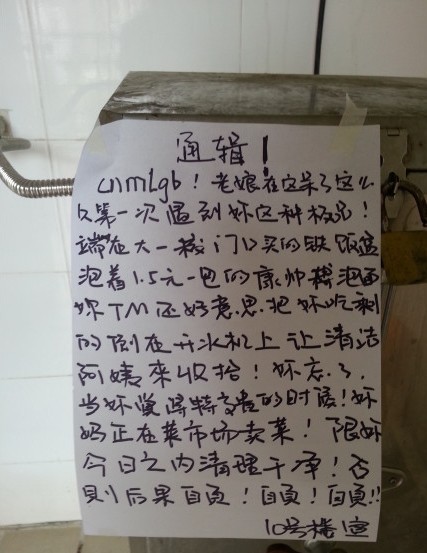 通缉!
cnmLgb！老娘在这呆了这么
久第一次遇到妳这种极品！
端在大一校门口买的铁饭盒
泡着1.5元一包的康帅博泡面
妳TM还好意思把妳吃剩
的倒在开水机上让清洁
阿姨来收拾！妳忘了，
当妳觉得特高贵的时候！妳
妈正在菜市场卖菜！限妳
今日之内清理干净！否
则后果自负！自负！自负!!
10号楼1宣